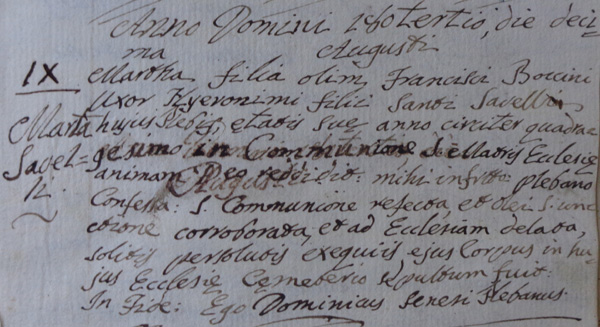 Anno Domini 180tertio, die deci=
ma Augusti
IX Martha filia olim Francisci Boccini
Uxor Hyeronimi filii Santi Savelli
Marta hujus Plebis, etatis suę anno circiter quadra=
Savel= gesimo in Communione S. Matris Ecclesię
li animam Deo reddidit: mihi infrtto: Plebano
Confessa: S. Communione refecta, et olei S. unc
tione corroborata, et ad Ecclesiam delata,
solitis persolutis exequiis ejus Corpus in hu=
jus Ecclesię Cęmeterio sepultum fuit:
In Fide: Ego Dominicus Senesi Plebanus.